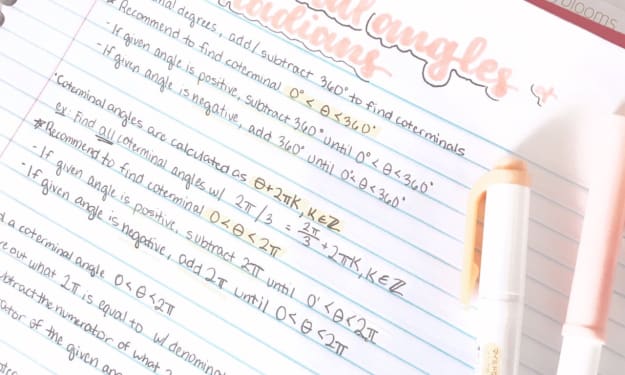 angles +
radians
degrees, add/subtract 360° to find coterminals
*Recommend to find coterminal 0° < θ < 360°
- If given angle is positive, subtract 360° until 0° < θ < 360°
- If given angle is negative, add 360° until 0° < θ < 360°
·Coterminal angles are calculated as θ+2πK, K∈ℤ
ex: Find all coterminal angles w/ 2π/3 = 2π/3 + 2πK, K∈ℤ
*Recommend to find coterminal 0 < θ < 2π
- If given angle is positive, subtract 2π until 0° < θ < 2π
- If given angle is negative, add 2π until 0 < θ < 2π
a coterminal angle 0 < θ < 2π
out what 2π is equal to w/
the numerator of what
of the given
blooms